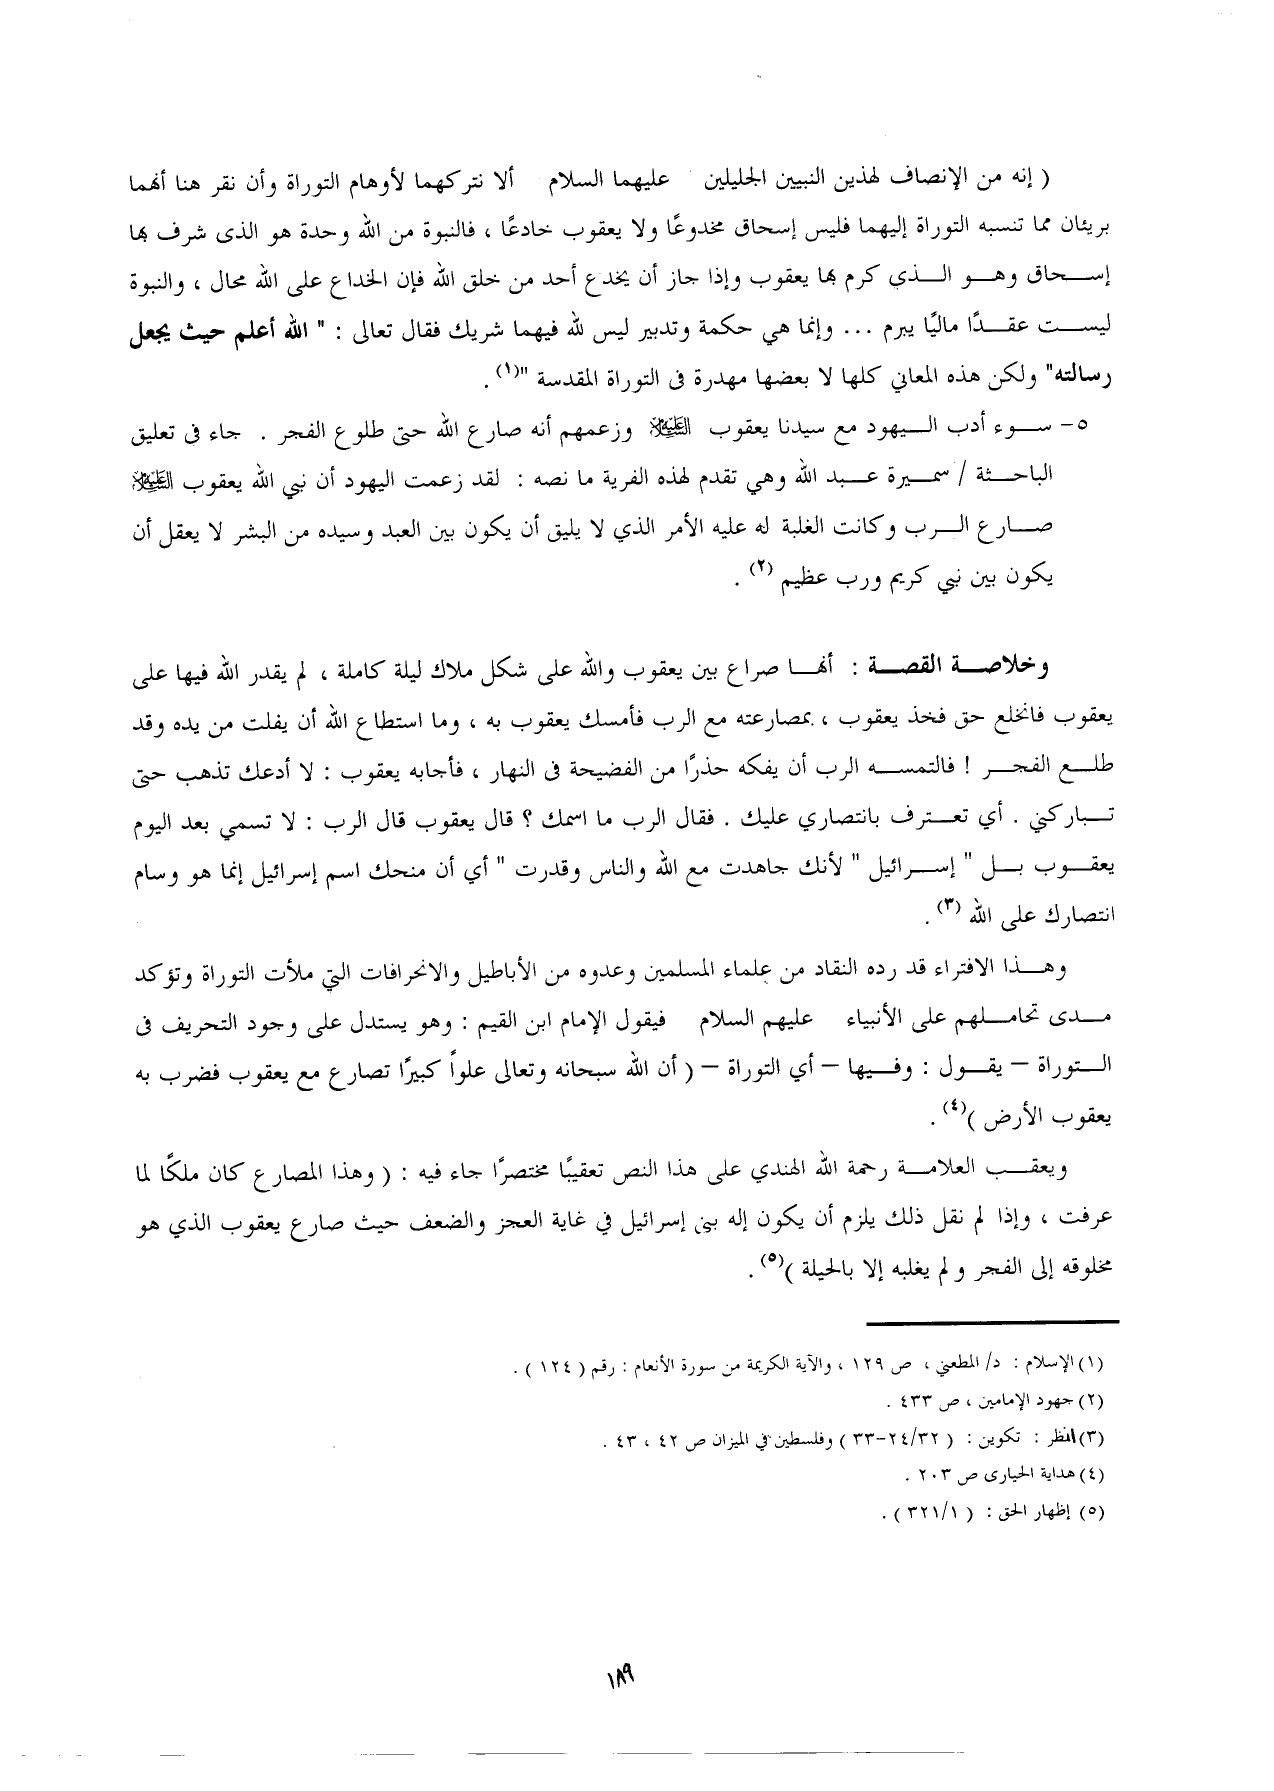 ( إنه من الإنصاف لهذين النبيين الجليلين عليهما السلام ألا نتركهما لأوهام التوراة وأن نقر هنا أنهما
بريئان مما تنسبه التوراة إليهما فليس إسحاق مخدوعًا ولا يعقوب خادعًا ، فالنبوة من الله وحدة هو الذى شرف بها
إسحاق وهو الذي كرم بها يعقوب وإذا جاز أن يخدع أحد من خلق الله فإن الخداع على الله محال ، والنبوة
ليست عقدًا ماليًا يبرم ... وإنما هي حكمة وتدبير ليس لله فيهما شريك فقال تعالى : " الله أعلم حيث يجعل
رسالته" ولكن هذه المعاني كلها لا بعضها مهدرة فى التوراة المقدسة "(١).
٥- سوء أدب اليهود مع سيدنا يعقوب عليه السلام وزعمهم أنه صارع الله حتى طلوع الفجر . جاء فى تعليق
الباحثة / سميرة عبد الله وهي تقدم لهذه الفرية ما نصه : لقد زعمت اليهود أن نبي الله يعقوب عليه السلام
صارع الرب وكانت الغلبة له عليه الأمر الذي لا يليق أن يكون بين العبد وسيده من البشر لا يعقل أن
يكون بين نبي كريم ورب عظيم (٢) .
وخلاصة القصة : أنها صراع بين يعقوب والله على شكل ملاك ليلة كاملة ، لم يقدر الله فيها على
يعقوب فانخلع حق فخذ يعقوب ، بمصارعته مع الرب فأمسك يعقوب به ، وما استطاع الله أن يفلت من يده وقد
طلع الفجر ! فالتمسه الرب أن يفكه حذرًا من الفضيحة فى النهار ، فأجابه يعقوب : لا أدعك تذهب حتى
تباركني . أي تعترف بانتصاري عليك . فقال الرب ما اسمك ؟ قال يعقوب قال الرب : لا تسمي بعد اليوم
يعقوب بل " إسرائيل " لأنك جاهدت مع الله والناس وقدرت " أي أن منحك اسم إسرائيل إنما هو وسام
انتصارك على الله (٣).
وهذا الافتراء قد رده النقاد من علماء المسلمين وعدوه من الأباطيل والانحرافات التي ملأت التوراة وتؤكد
مدى تحاملهم على الأنبياء عليهم السلام فيقول الإمام ابن القيم : وهو يستدل على وجود التحريف فى
التوراة – يقول : وفيها – أي التوراة – ( أن الله سبحانه وتعالى علواً كبيرًا تصارع مع يعقوب فضرب به
يعقوب الأرض )(٤).
ويعقب العلامة رحمة الله الهندي على هذا النص تعقيبًا مختصرًا جاء فيه : ( وهذا المصارع كان ملكًا لما
عرفت ، وإذا لم نقل ذلك يلزم أن يكون إله بنى إسرائيل في غاية العجز والضعف حيث صارع يعقوب الذي هو
مخلوقه إلى الفجر و لم يغلبه إلا بالحيلة )(٥).
(١) الإسلام : د/ المطعني ، ص ١٢٩ ، والآية الكريمة من سورة الأنعام : رقم ( ١٢٤ ) .
(٢) جهود الإمامين ، ص ٤٣٣ .
(٣) انظر : تكوين : ( ٢٤/٣٢-٣٣ ) وفلسطين في الميزان ص ٤٢ ، ٤٣ .
(٤) هداية الحيارى ص ٢٠٣ .
(٥) إظهار الحق : ( ٣٢١/١ ) .
١٨٩